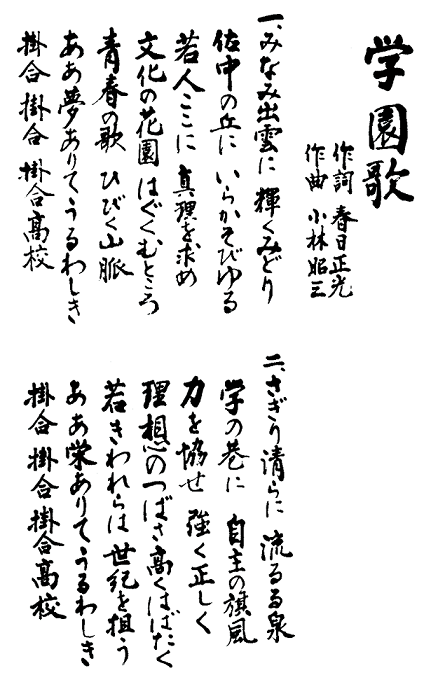 学園歌
作詞 春日正光
作曲 小林昭三
一、みなみ出雲に 輝くみどり
佐中の丘に いらかそびゆる
若人ここに 真理を求め
文化の花園 はぐくむところ
青春の歌 ひびく山脈
ああ夢ありてうるわしき
掛合 掛合 掛合高校
二、さぎり清らに 流るる泉
学の巷に 自主の旗風
力を協せ 強く正しく
理想のつばさ高くはばたく
若きわれらは 世紀を担う
ああ栄ありてうるわしき
掛合 掛合 掛合高校